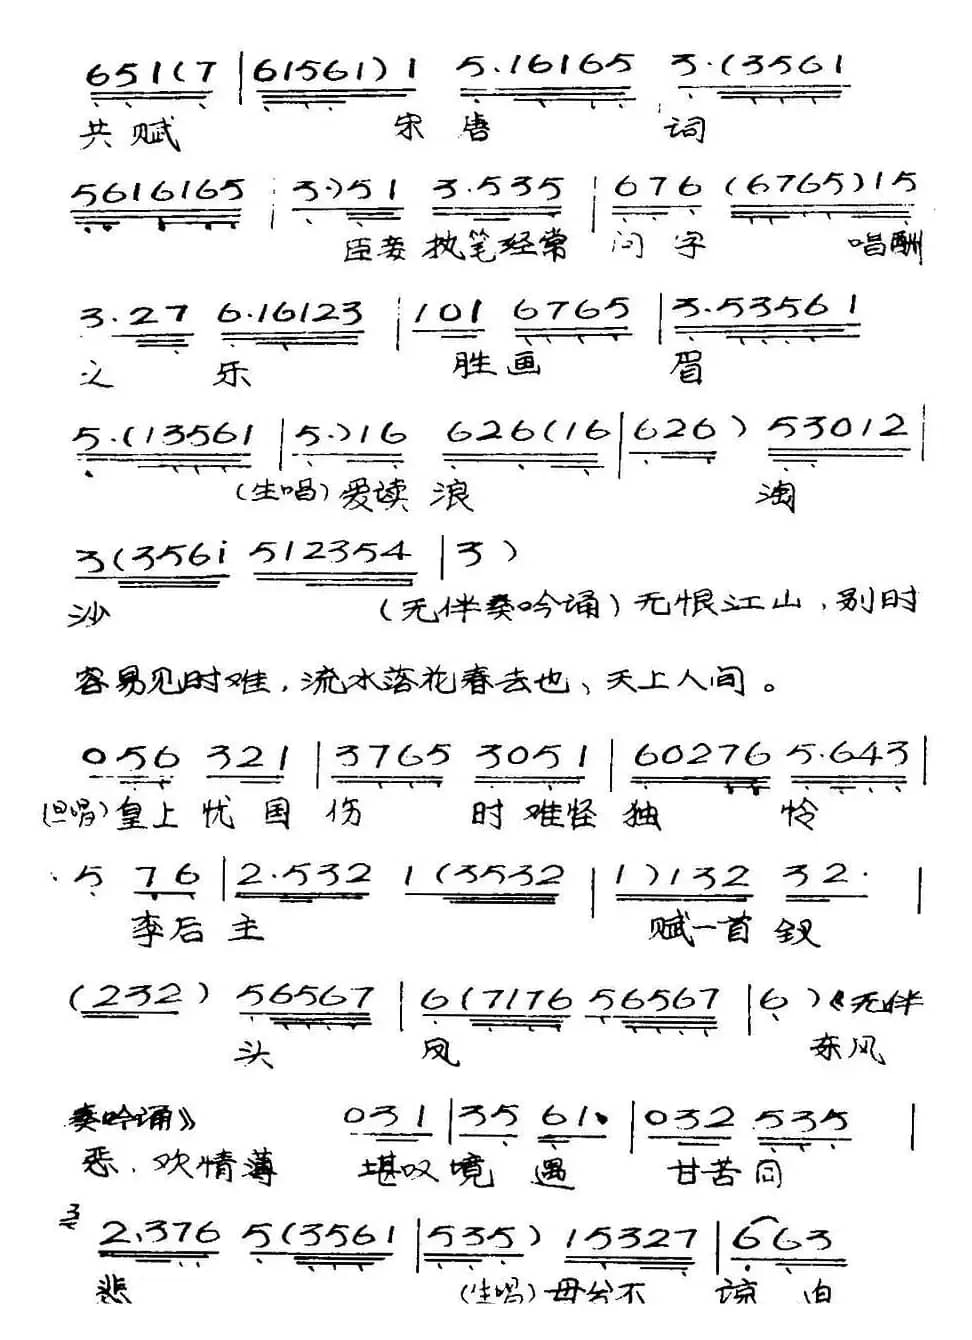 651(7 | 61561)1 5·16165 3·(3561
共赋 宋唐 词
5616165 | 3·)51 3·535 | 676 (6765)15
臣妾执笔经常 问字 唱酬
3·27 6·16123 | 101 6765 | 3·53561
之 乐 胜画 眉
5·(13561 | 5·)16 626(16 | 626) 53012 |
(生唱)爱读 浪 淘
3(356i 512354 | 3)
沙 (无伴奏吟诵)无恨江山,别时
容易见时难,流水落花春去也、天上人间。
056 321 | 3765 3051 | 60276 5·643 |
(旦唱)皇上忧国伤 时难怪独 怜
5 76 | 2·532 1(3532 | 1)132 32· |
李后主 赋一首钗
(232) 56567 | 6(7176 56567 | 6)《无伴
头 凤 东风
奏吟诵》 031 | 35 61· | 032 535 |
恶.欢情薄 堪叹境遇 甘苦同
2·376 5(3561 | 535) 15327 | 663
悲 (生唱)毋分不 谅